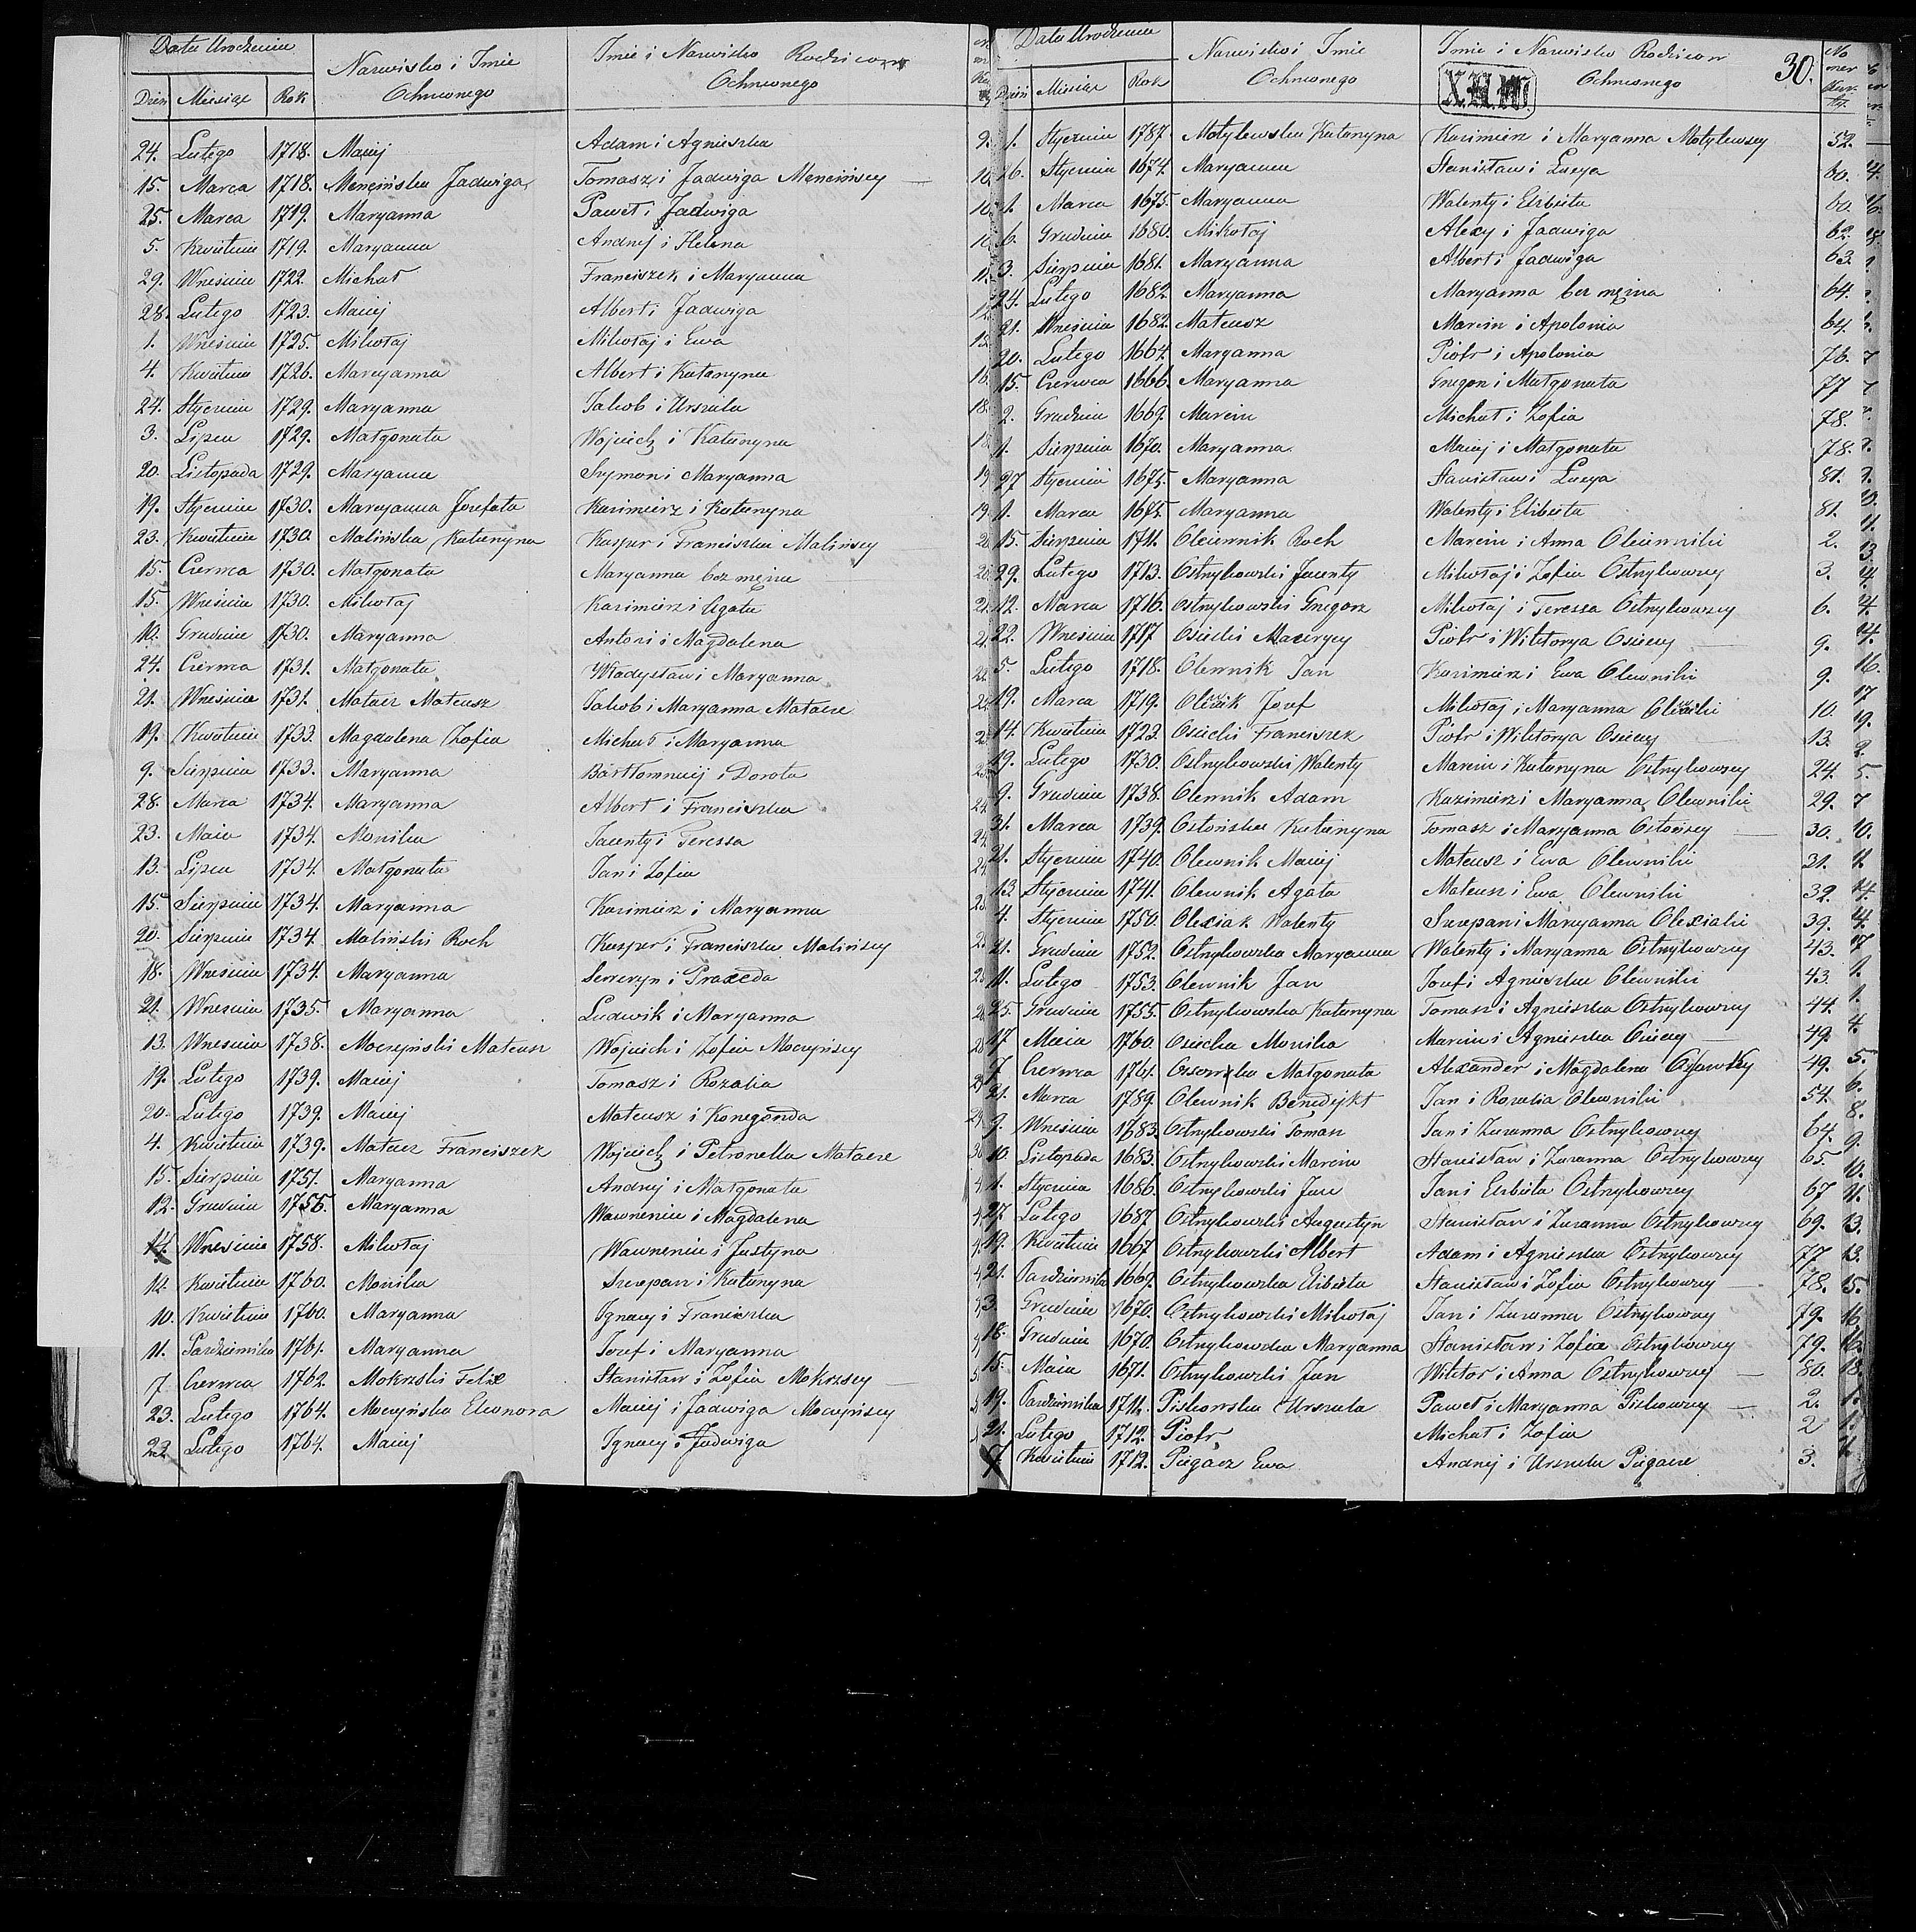 Data Urodzenia
Dzień Miesiąc Rok Nazwisko i Imie Ochrzconego Imie i Nazwisko Rodziców
24. Lutego 1718. Maciej Adam i Agnieszka
15. Marca 1718. Mencińska Jadwiga Tomasz i Jadwiga Mencińscy
25. Marca 1719. Maryanna Paweł i Jadwiga
5. Kwietnia 1719. Maryanna Andrzej i Helena
29. Wrzesnia 1722. Michał Franciszek i Maryanna
28. Lutego 1723. Maciej Albert i Jadwiga
1. Wrzesnia 1725. Mikołaj Mikołaj i Ewa
4. Kwietnia 1726. Maryanna Albert i Katarzyna
24. Stycznia 1729. Maryanna Jakob i Urszula
3. Lipca 1729. Małgorzata Wojciech i Katarzyna
20. Listopada 1729. Maryanna Szymon i Maryanna
19. Stycznia 1730. Maryanna Jozefata Kazimierz i Katarzyna
23. Kwietnia 1730. Malińska Katarzyna Kasper i Franciszka Malińscy
15. Czerwca 1730. Małgorzata Maryanna bez męża
15. Wrzesnia 1730. Mikołaj Kazimierz i Agata
10. Grudnia 1730. Maryanna Antoni i Magdalena
24. Czerwca 1731. Małgorzata Władysław i Maryanna
21. Wrzesnia 1731. Matacz Mateusz Jakob i Maryanna Matacze
19. Kwietnia 1733. Magdalena Zofia Michał i Maryanna
9. Sierpnia 1733. Maryanna Bartłomniej i Dorota
28. Marca 1734. Maryanna Albert i Franciszka
23. Maia 1734. Monika Jacenty i Teressa
13. Lipca 1734. Małgorzata Jan i Zofia
15. Sierpnia 1734. Maryanna Kazimierz i Maryanna
20. Sierpnia 1734. Maliński Roch Kasper i Franciszka Malińscy
18. Wrzesnia 1734. Maryanna Serweryn i Praxeda
21. Wrzesnia 1735. Maryanna Ludwik i Maryanna
13. Wrzesnia 1738. Moczyński Mateusz Wojciech i Zofia Moczyńscy
19. Lutego 1739. Maciej Tomasz i Rozalia
20. Lutego 1739. Maciej Mateusz i Konegonda
4. Kwietnia 1739. Matacz Franciszek Wojciech i Petronella Matacze
15. Sierpnia 1751. Maryanna Andrzej i Małgorzata
12. Grudnia 1756. Maryanna Wawrzeniec i Magdalena
14. Wrzesnia 1758. Mikołaj Wawrzeniec i Justyna
12. Kwietnia 1760. Monika Szczepan i Katarzyna
10. Kwietnia 1760. Maryanna Ignacy i Franciszka
11. Pazdziernika 1761. Maryanna Jozef i Maryanna
7. Czerwca 1762. Mokrzski Felix Stanisław i Zofia Mokrzscy
23. Lutego 1764. Moczyńska Eleonora Maciej i Jadwiga Moczyńscy
22. Lutego 1764. Maciej Ignacy i Jadwiga
Data Urodzenia 30.
Dzień Miesiąc Rok Nazwisko i Imie Ochrzconego Imie i Nazwisko Rodziców Ochrzconego Nomer
1. Stycznia 1787. Motylewska Katarzyna Kazimierz i Maryanna Motylewscy 52.
16. Stycznia 1674. Maryanna Stanisław i Lucya 60.
1. Marca 1675. Maryanna Walenty i Elzbieta 60.
6. Grudnia 1680. Mikołaj Alexy i Jadwiga 62.
3. Sierpnia 1681. Maryanna Albert i Jadwiga 63.
24. Lutego 1682. Maryanna Maryanna bez męża 64.
21. Wrzesnia 1682. Mateusz Marcin i Apolonia 64.
20. Lutego 1664. Maryanna Piotr i Apolonia 76.
15. Czerwca 1666. Maryanna Grzegorz i Małgorzata 77
2. Grudnia 1669. Marcin Michał i Zofia 78.
1. Sierpnia 1670. Maryanna Maciej i Małgorzata 78.
27 Stycznia 1675. Maryanna Stanisław i Lucya 81.
1. Marca 1675. Maryanna Walenty i Elzbieta 81.
15. Sierpnia 1711. Oleiwnik Roch Marcin i Anna Oleiwniki 2.
29. Lutego 1713. Ostrzykowski Jacenty Mikołaj i Zofia Ostrzykowscy 3.
12. Marca 1716. Ostrzykowski Grzegorz Mikołaj i Teressa Ostrzykowscy 6.
22. Wrzesnia 1717 Osiecki Maurycy Piotr i Wiktorya Osieccy 9.
5. Lutego 1718. Olewnik Jan Kazimierz i Ewa Olewniki 9.
19. Marca 1719. Jozef Mikołaj i Maryanna 10.
14. Kwietnia 1723. Osiecki Franciszek Piotr i Wiktorya Osieccy 13.
19. Lutego 1730. Ostrzykowski Walenty Marcin i Katarzyna Ostrzykowscy 24.
9. Grudnia 1738. Olewnik Adam Kazimierz i Maryanna Olewniki 29.
31. Marca 1739. Ostońska Katarzyna Tomasz i Maryanna Ostońscy 30.
21. Stycznia 1740. Olewnik Maciej Mateusz i Ewa Olewniki 31.
13. Stycznia 1741. Olewnik Agata Mateusz i Ewa Olewniki 32.
4. Stycznia 1750. Olexiak Walenty Szczepan i Maryanna Olexiaki 39.
21. Grudnia 1752. Ostrzykowska Maryanna Walenty i Maryanna Ostrzykowscy 43.
11. Lutego 1753. Olewnik Jan Jozef i Agnieszka Olewniki 43.
25. Grudnia 1755. Ostrzykowska Katarzyna Tomasz i Agnieszka Ostrzykowscy 44.
17 Maia 1760. Osiecka Monika Marcin i Agnieszka Osieccy 49.
7 Czerwca 1761. Małgorzata Alexander i Magdalena 49.
21. Marca 1789. Olewnik Benedykt Jan i Rozalia Olewniki 54.
9. Wrzesnia 1683. Ostrzykowski Tomasz Jan i Zuzanna Ostrzykowscy 64.
10. Listopada 1683. Ostrzykowski Marcin Stanisław i Zuzanna Ostrzykowscy 65.
1. Stycznia 1686. Ostrzykowski Jan Jan i Elzbieta Ostrzykowscy 67
27. Lutego 1687 Ostrzykowski Augustyn Stanisław i Zuzanna Ostrzykowscy 69.
19. Kwietnia 1667 Ostrzykowski Albert Adam i Agnieszka Ostrzykowscy 77
21. Pazdziernika 1669. Ostrzykowska Elzbieta Stanisław i Zofia Ostrzykowscy 78.
3. Grudnia 1670. Ostrzykowski Mikołaj Jan i Zuzanna Ostrzykowscy 79.
18. Grudnia 1670. Ostrzykowska Maryanna Stanisław i Zofia Ostrzykowscy 79.
15. Maia 1671. Ostrzykowski Jan Wiktor i Anna Ostrzykowscy 80.
19. Pazdziernika 1712. Piskowska Urszula Paweł i Maryanna Piskowscy 2.
21. Lutego 1712. Piotr Michał i Zofia 2
7 Kwietnia 1712. Pięgacz Ewa Andrzej i Urszula Pięgacze 3.